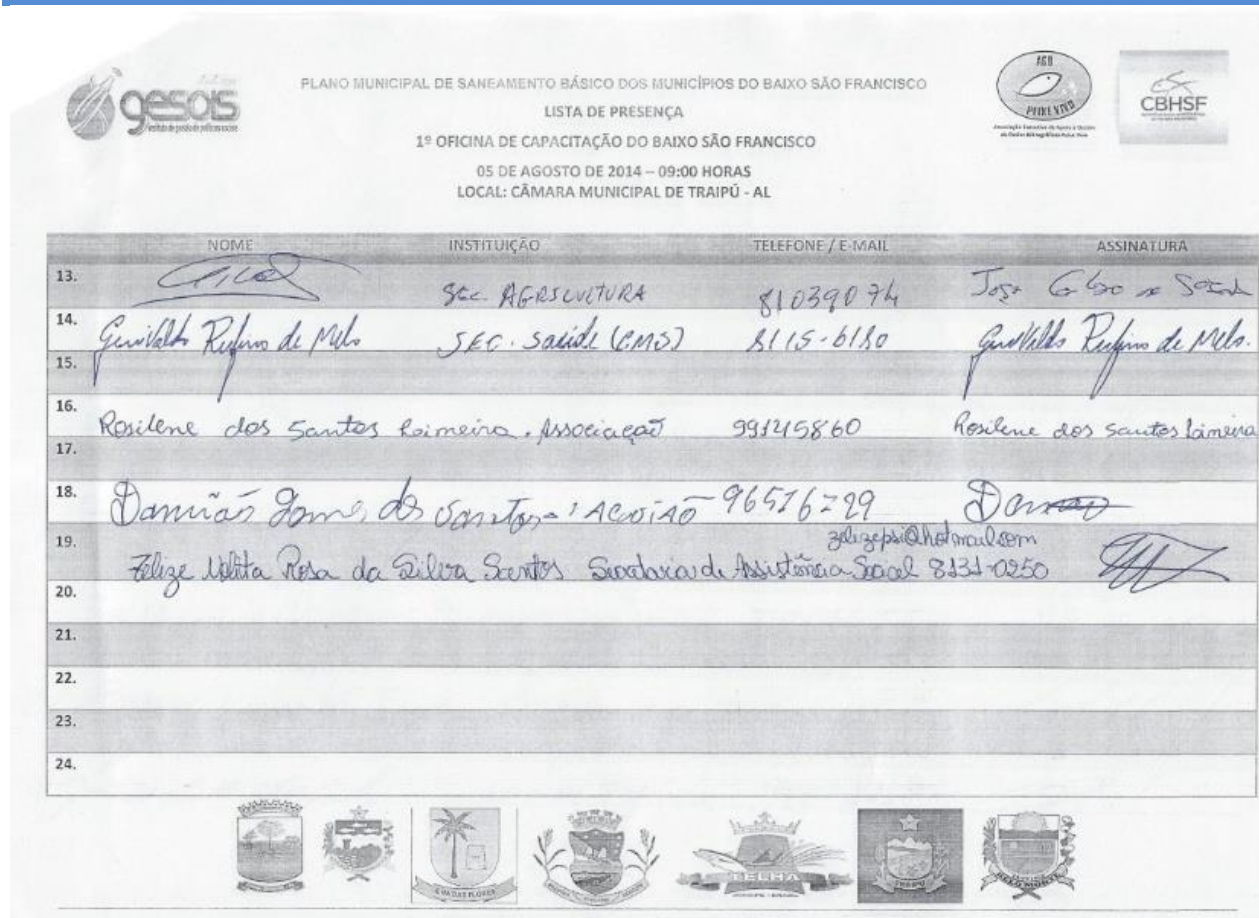 gesois
instituto de gestão de políticas sociais
PLANO MUNICIPAL DE SANEAMENTO BÁSICO DOS MUNICÍPIOS DO BAIXO SÃO FRANCISCO
LISTA DE PRESENÇA
1º OFICINA DE CAPACITAÇÃO DO BAIXO SÃO FRANCISCO
05 DE AGOSTO DE 2014 – 09:00 HORAS
LOCAL: CÂMARA MUNICIPAL DE TRAIPÚ - AL
AGB
PEIXE VIVO
CBHSF
NOME INSTITUIÇÃO TELEFONE / E-MAIL ASSINATURA
13. SEC. AGRICULTURA 81039074
14. Rufino de Melo SEC. Saúde (CMS) 8115-6180 Rufino de Melo.
15.
16. Rosilene dos Santos Associação 991245860 Rosilene dos Santos
17.
18. Damião Gomes dos Santos
19. Rosa da Silva Santos Secretaria de Assistência Social 8131-0250
20.
21.
22.
23.
24.
TELHA
TRAIPU
BELO MONTE